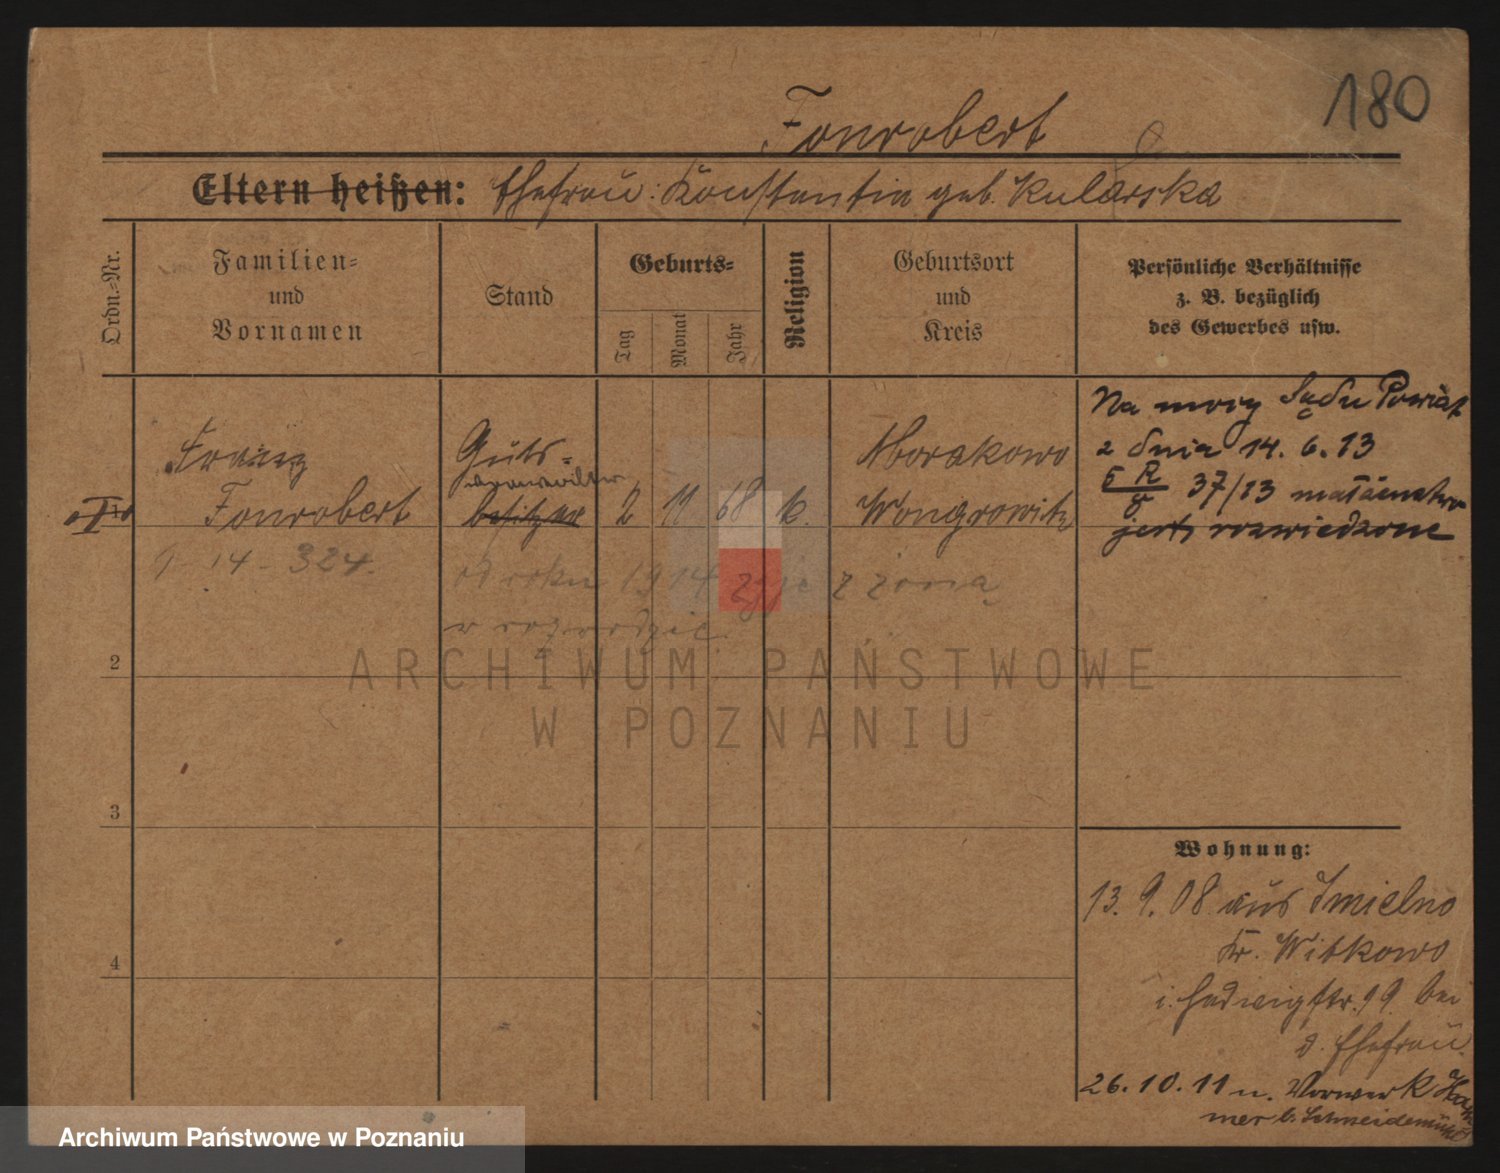 180
Fonrobert
Eltern heißen: Ehefrau: Konstantia geb. Kularska
Ordn.-Nr.
Familien-
und
Vornamen
Stand
Geburts-
Tag
Monat
Jahr
Religion
Geburtsort
und
Kreis
Persönliche Verhältnisse
z. B. bezüglich
des Gewerbes usw.
Na mocy Sądu Powiat
z dnia 14. 6. 13
5 R
8
37/13 małżeństwo
jest rozwiedzone
Franz
Fonrobert
Guts-
verwalter
besitzer
2 11 68 k.
Morakowo
Wongrowitz
1
9 - 14 - 324.
od roku 1914 żyje z żoną
w rozwodzie.
2
3
4
Wohnung:
13. 9. 08 aus Imielno
Kr. Witkowo
i. Hedwigstr. 19 bei
d. Ehefrau.
26. 10. 11 n. Vorwerk Ham
mer b. Schneidemühl
ARCHIWUM PAŃSTWOWE
W POZNANIU
Archiwum Państwowe w Poznaniu